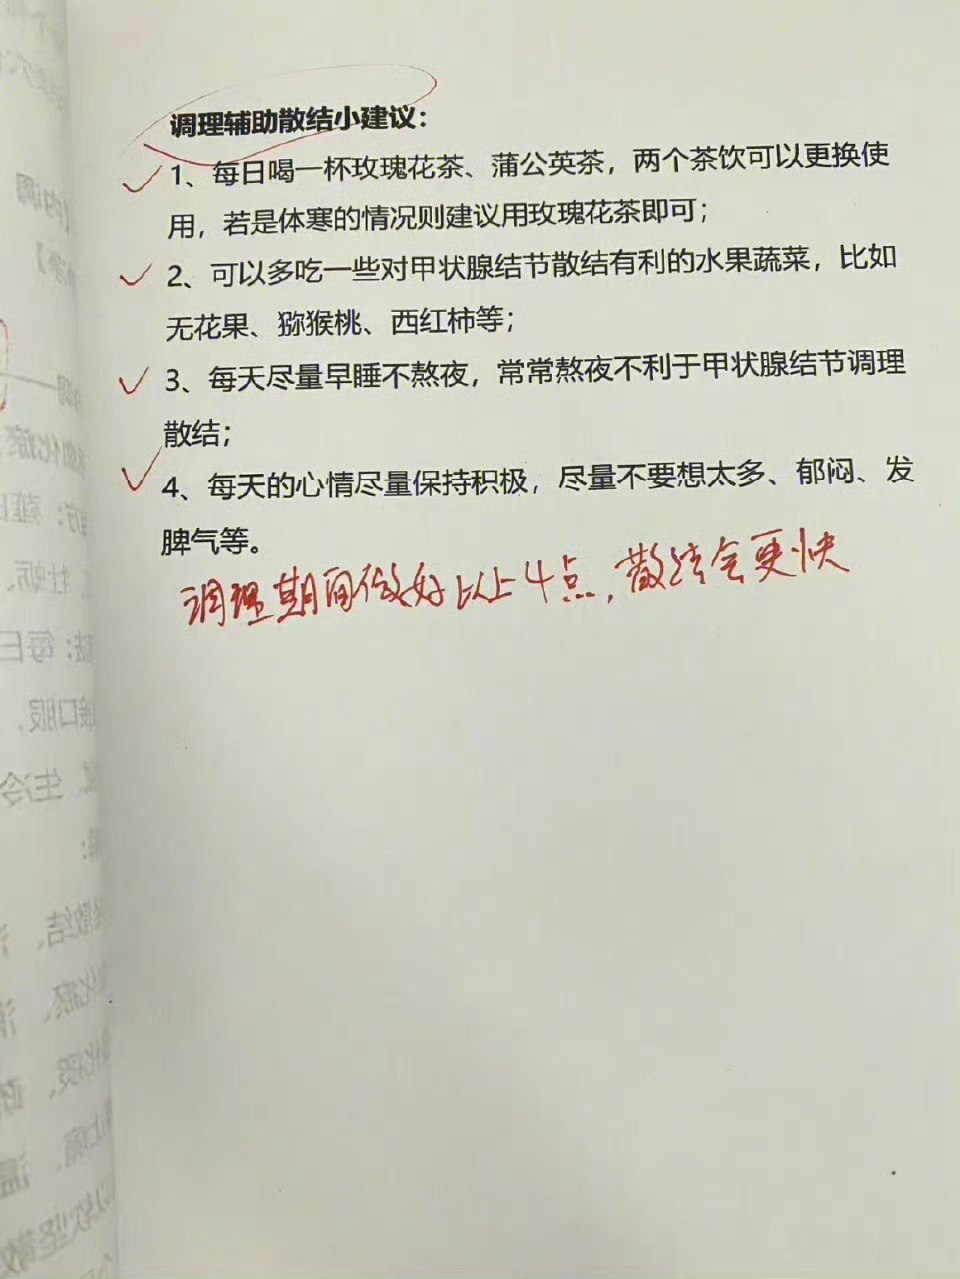 调理辅助散结小建议：
1、每日喝一杯玫瑰花茶、蒲公英茶，两个茶饮可以更换使
用，若是体寒的情况则建议用玫瑰花茶即可；
2、可以多吃一些对甲状腺结节散结有利的水果蔬菜，比如
无花果、猕猴桃、西红柿等；
3、每天尽量早睡不熬夜，常常熬夜不利于甲状腺结节调理
散结；
4、每天的心情尽量保持积极，尽量不要想太多、郁闷、发
脾气等。
调理期间做好以上4点，散结会更快